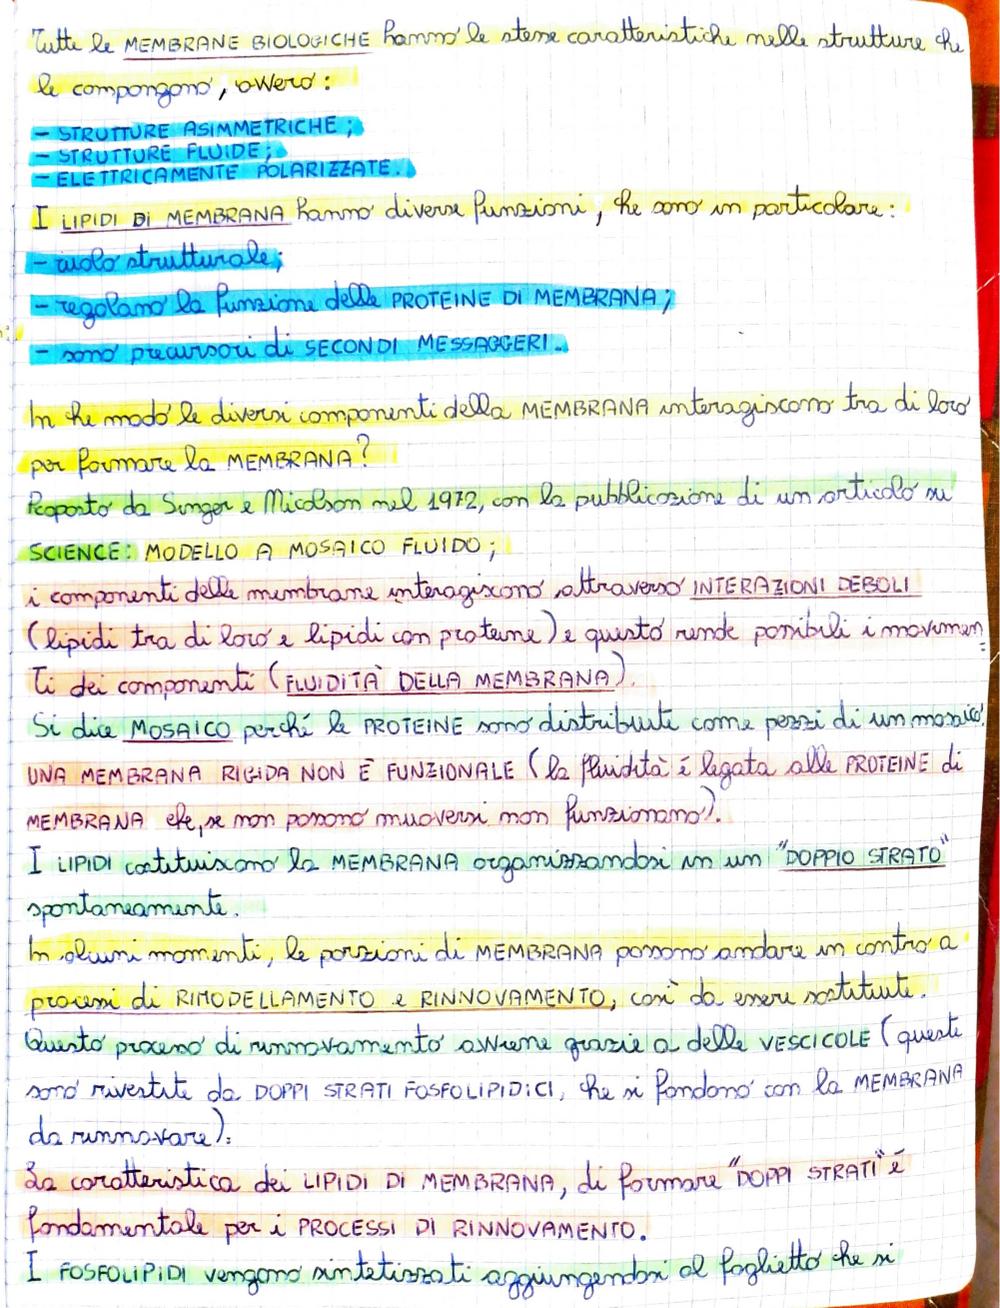 Tutte le MEMBRANE BIOLOGICHE hanno le stesse caratteristiche nelle strutture che
le compongono, ovvero:
- STRUTTURE ASIMMETRICHE;
- STRUTTURE FLUIDE;
- ELETTRICAMENTE POLARIZZATE.
I LIPIDI DI MEMBRANA hanno diverse funzioni, che sono in particolare:
- ruolo strutturale;
- regolano la funzione delle PROTEINE DI MEMBRANA;
- sono precursori di SECONDI MESSAGGERI.
In che modo le diversi componenti della MEMBRANA interagiscono tra di loro
per formare la MEMBRANA?
Proposto da Singer e Nicolson nel 1972, con la pubblicazione di un articolo su
SCIENCE: MODELLO A MOSAICO FLUIDO;
i componenti delle membrane interagiscono attraverso INTERAZIONI DEBOLI
(lipidi tra di loro e lipidi con proteine) e questo rende possibili i movimen
ti dei componenti (FLUIDITÀ DELLA MEMBRANA).
Si dice MOSAICO perché le PROTEINE sono distribuite come pezzi di un mosaico.
UNA MEMBRANA RIGIDA NON È FUNZIONALE (la fluidità è legata alle PROTEINE di
MEMBRANA che, se non possono muoversi non funzionano).
I LIPIDI costituiscono la MEMBRANA organizzandosi in un "DOPPIO STRATO"
spontaneamente.
In alcuni momenti, le porzioni di MEMBRANA possono andare in contro a
processi di RIMODELLAMENTO e RINNOVAMENTO, così da essere sostituite.
Questo processo di rinnovamento avviene grazie a delle VESCICOLE (queste
sono rivestite da DOPPI STRATI FOSFOLIPIDICI, che si fondono con la MEMBRANA
da rinnovare).
La caratteristica dei LIPIDI DI MEMBRANA, di formare "DOPPI STRATI" è
fondamentale per i PROCESSI DI RINNOVAMENTO.
I FOSFOLIPIDI vengono sintetizzati aggiungendosi al foglietto che si